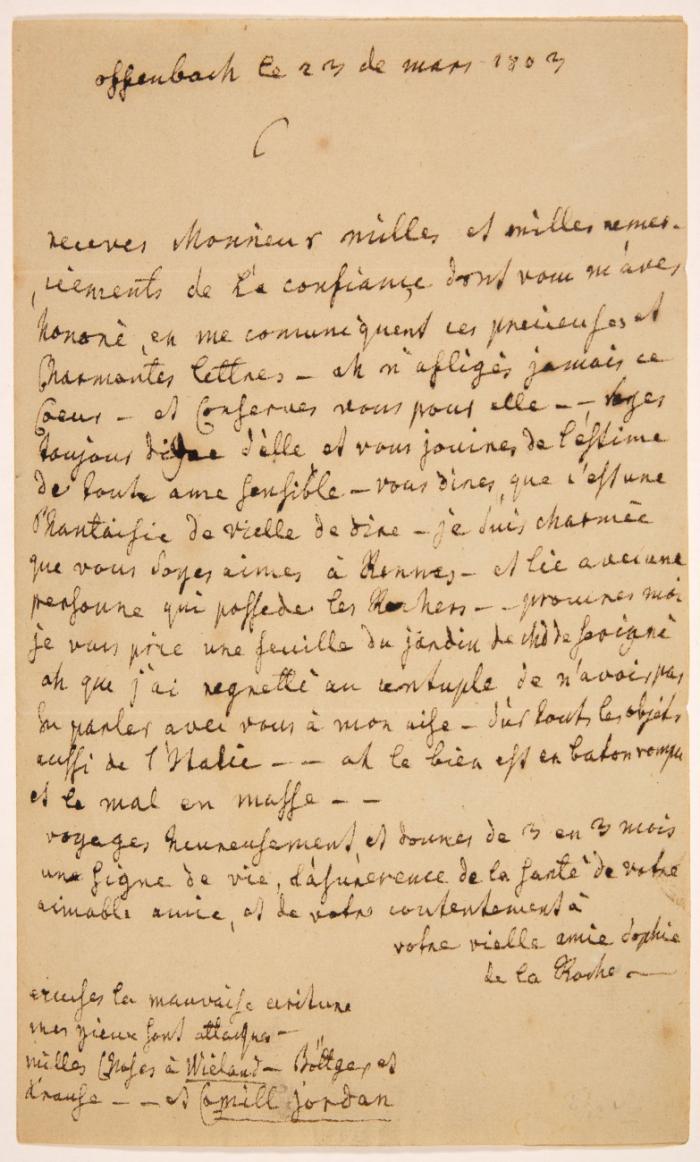 offenbach le 23 de mars 1803
receves Monsieur milles et milles remer-
ciements de la confiance dont vous m'aves
honoré en me comuniquent ces precieuses et
Charmantes lettres – ah n'afligés jamais ce
Coeur – et Conserves vous pour elle – – soyes
toujour digne d'elle et vous jouires de l'estime
de toute ame sensible – vous dires, que c'est une
Phantaisie de vielle de dire – je suis charmée
que vous soyes aimes à Rennes – et lie avec une
personne qui possede les Rochers – – procures moi
je vous prie une feuille du jardin de Md de sevigné
ah que j'ai regretté au centuple de n'avoir pas
pu parler avec vous à mon aise – sur touts les objets
aussi de l'Italie – – ah le bien est en baton rompu
et le mal en masse – –
voyages heureusement et donnes de 3 en 3 mois
une signe de vie, de la santé de votre
aimable amie, et de votre contentement à
votre vielle amie sophie
de la Roche –
excuses la mauvaise ecriture
mes yieux sont attaques –
milles Choses à Wieland – Böttger et
Krause – – et Camill jordan